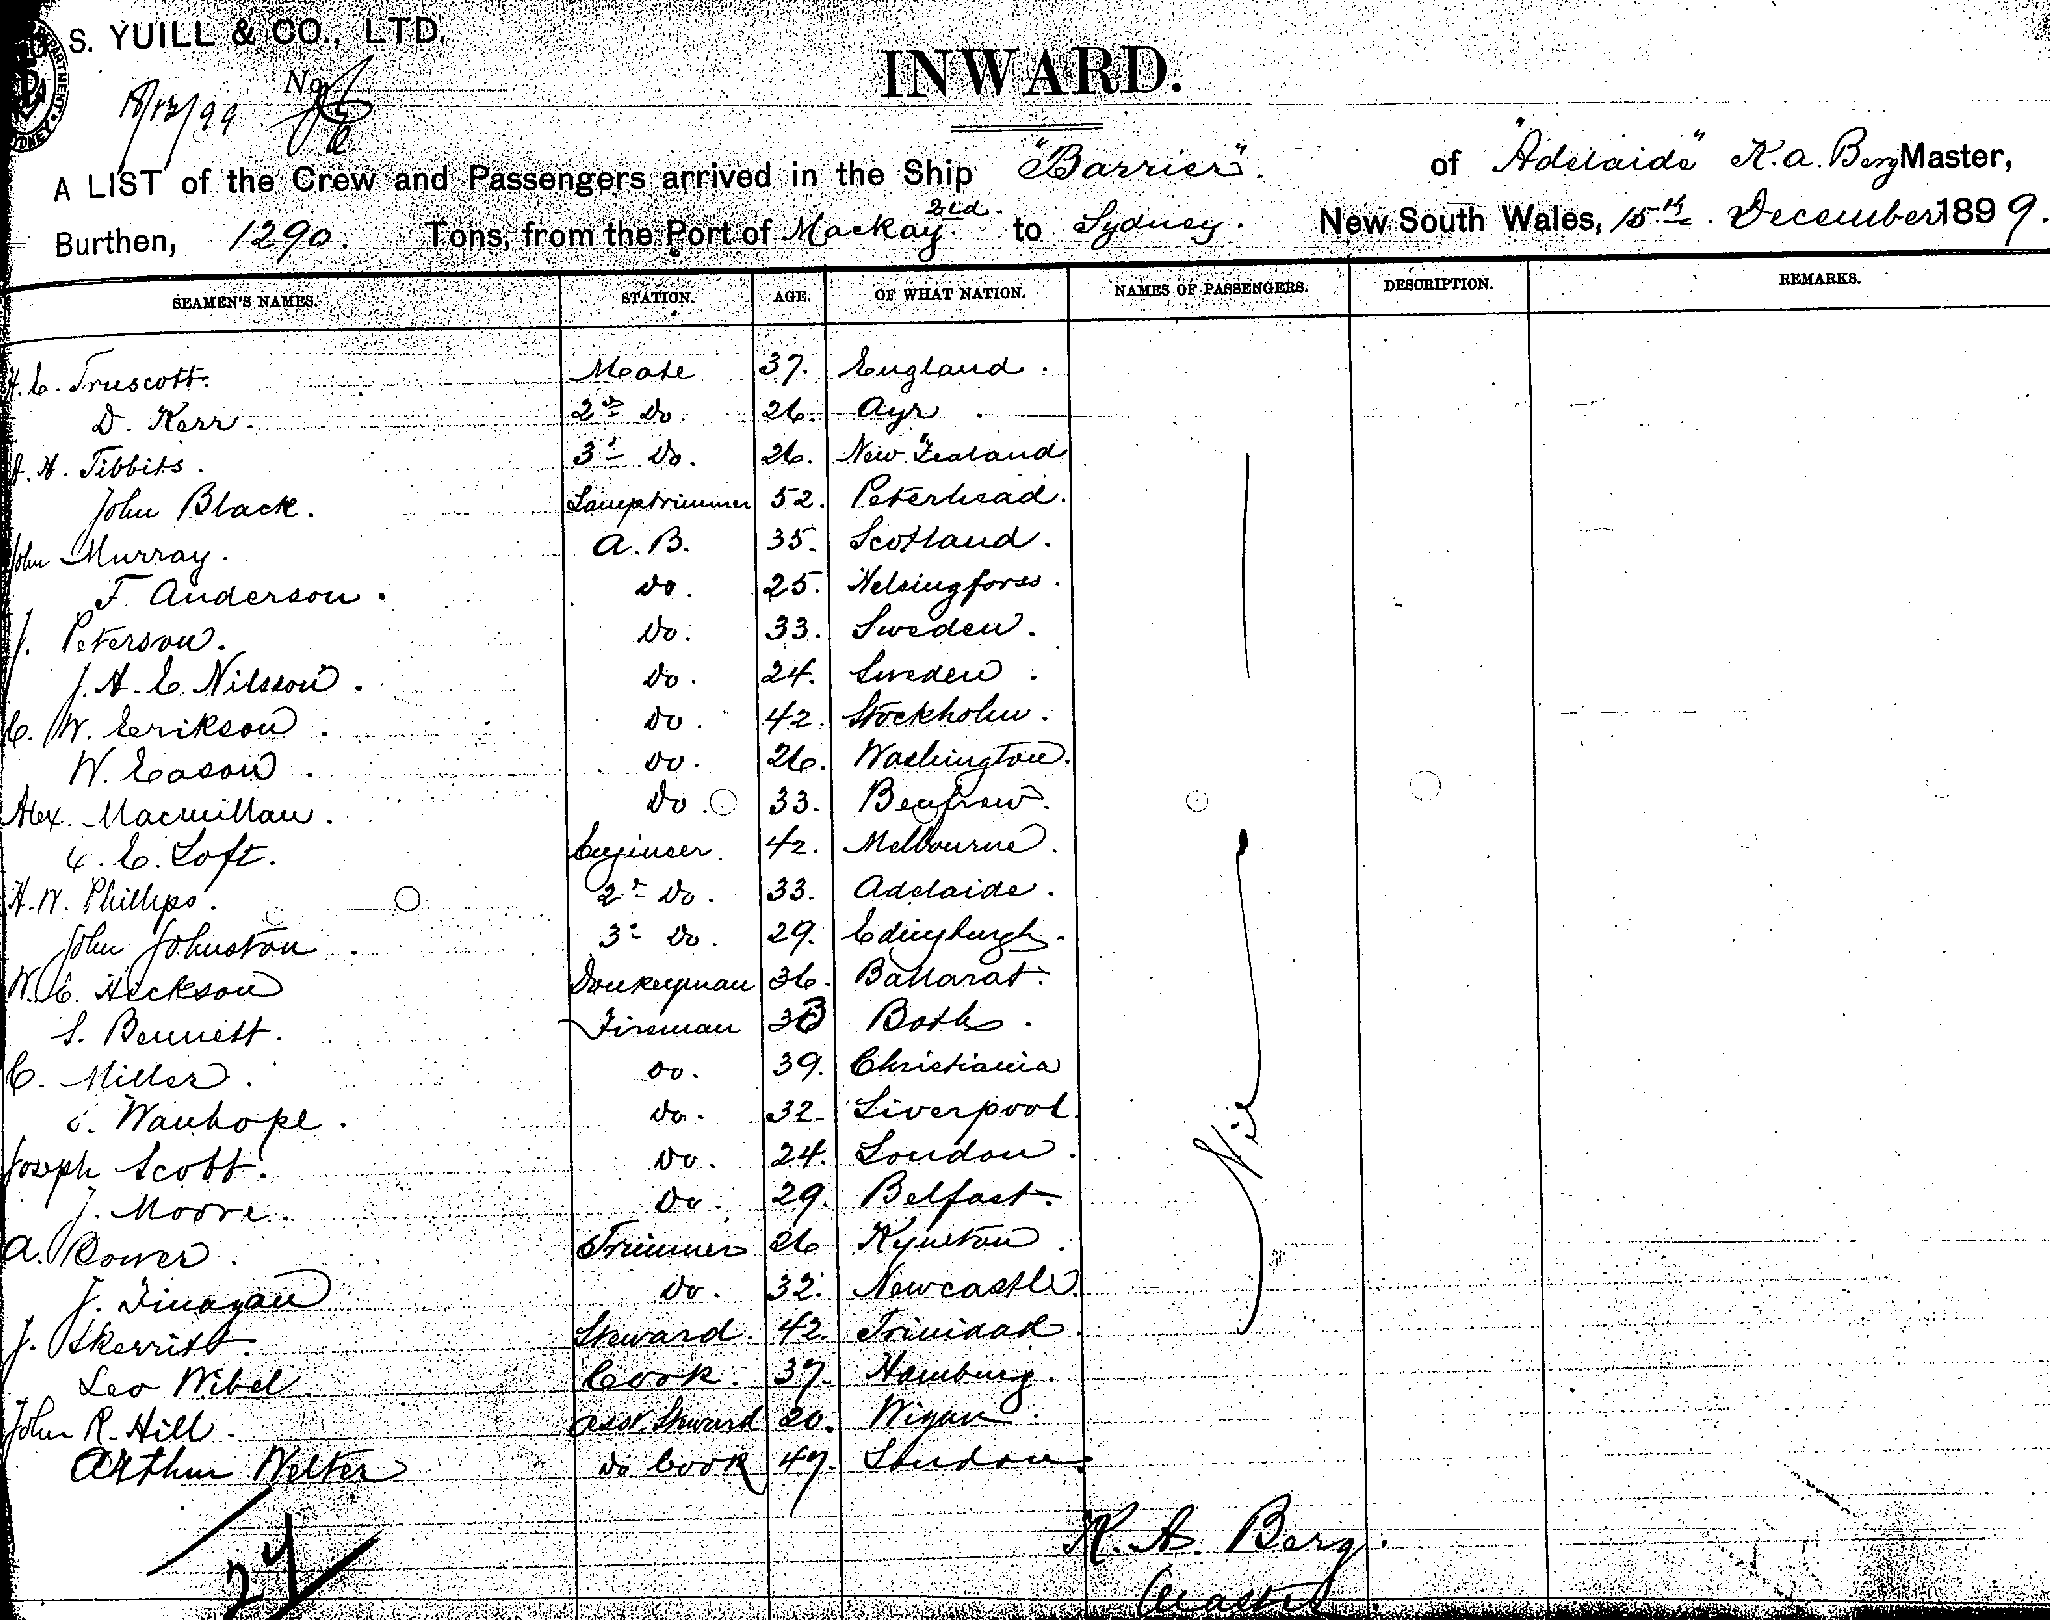 S. YUILL & CO., LTD.
INWARD.
No.
15/12/99
A LIST of the Crew and Passengers arrived in the Ship "Barrier". of "Adelaide" K. A. Berg Master,
Burthen, 1290. Tons, from the Port of Mackay to Sydney. New South Wales, 15th. December 1899.
SEAMEN'S NAMES. STATION. AGE. OF WHAT NATION. NAMES OF PASSENGERS. DESCRIPTION. REMARKS.
H. E. Truscott. Mate 37. England.
D. Kerr. 2nd Do. 26. Ayr.
H. Tibbits. 3d Do. 26. New Zealand
John Black. Lamptrimmer 52. Peterhead.
John Murray. A.B. 35. Scotland.
F. Anderson. Do. 25. Helsingfors.
J. Peterson. Do. 33. Sweden.
J. H. E. Nilsson. Do. 24. Sweden.
C. W. Eerikson. Do. 42. Stockholm.
W. Eason. Do. 26. Washington.
Alex. Macmillan. Do. 33. Renfrew.
C. E. Loft. Engineer. 42. Melbourne.
H. W. Phillips. 2d Do. 33. Adelaide.
John Johnston. 3d Do. 29. Edinburgh.
W. C. Heckson Donkeyman 36. Ballarat.
S. Bennett. Fireman 33 Bath.
C. Miller. Do. 39. Christiania
Wanhope. Do. 32. Liverpool.
Joseph Scott. Do. 24. London.
J. Moore. Do. 29. Belfast.
A. Power. Trimmer 26 Kyneton.
J. Finagan Do. 32. Newcastle.
J. Skerritt. Steward. 42. Trinidad.
Leo Wibel. Cook. 37. Hamburg.
John R. Hill. Asst. Steward 20. Wigan.
Arthur Welter Do Cook 47. London.
Nil
27
K. A. Berg.
Master